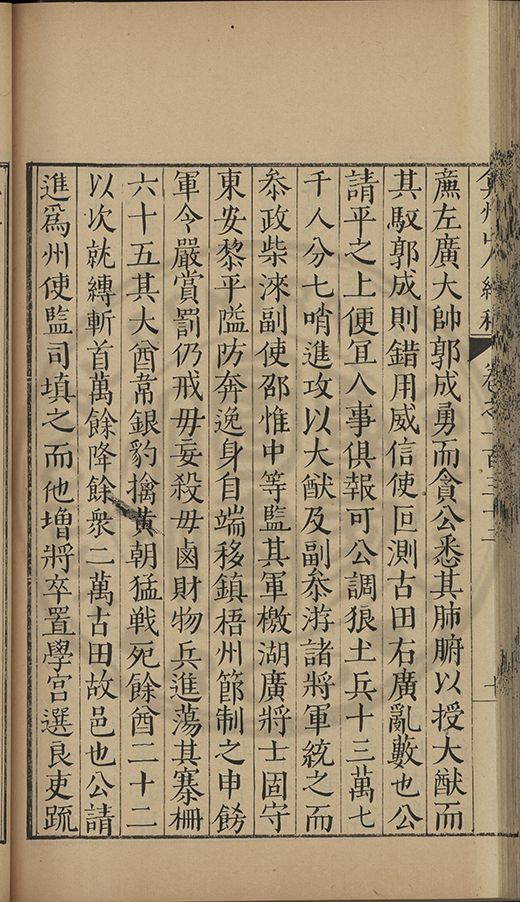 弇州山人續稿 卷之一百三十二 十
廉左廣大帥郭成勇而貪公悉其肺腑以授大猷而
其馭郭成則錯用威信使叵測古田右廣亂藪也公
請平之上便冝八事俱報可公調狼土兵十三萬七
千人分七哨進攻以大猷及副叅游諸將軍統之而
叅政柴淶副使邵惟中等監其軍檄湖廣將士固守
東安黎平隘防奔逸身自端移鎮梧州節制之申飭
軍令嚴賞罰仍戒毋妄殺毋鹵財物兵進蕩其寨柵
六十五其大酋常銀豹擒黃朝猛戰死餘酋二十二
以次就縳斬首萬餘降餘衆二萬古田故邑也公請
進爲州使監司填之而他增將卒置學宫選良吏疏